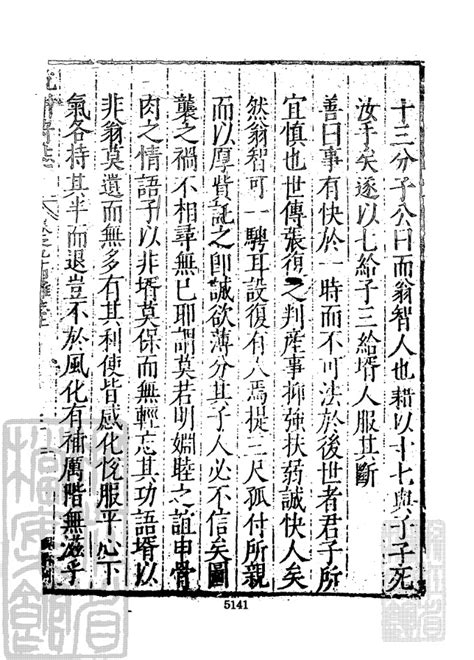 十三分子公曰而翁智人也藉以十七與子子死
汝手矣遂以七給子三給壻人服其斷
善曰事有快於一時而不可法於後世者君子所
宜慎也世傳張復之判產事抑強扶弱誠快人矣
然翁智可一騁耳設復有人焉提三尺孤付所親
而以厚貲託之卽誠欲薄分其子人必不信矣圖
襲之禍不相尋無已耶謂莫若明婣睦之誼申骨
肉之情語子以非壻莫保而無輕忘其功語壻以
非翁莫遺而無多有其利使皆感化悅服平心下
氣各持其半而退豈不於風化有補厲階無滋乎
5141